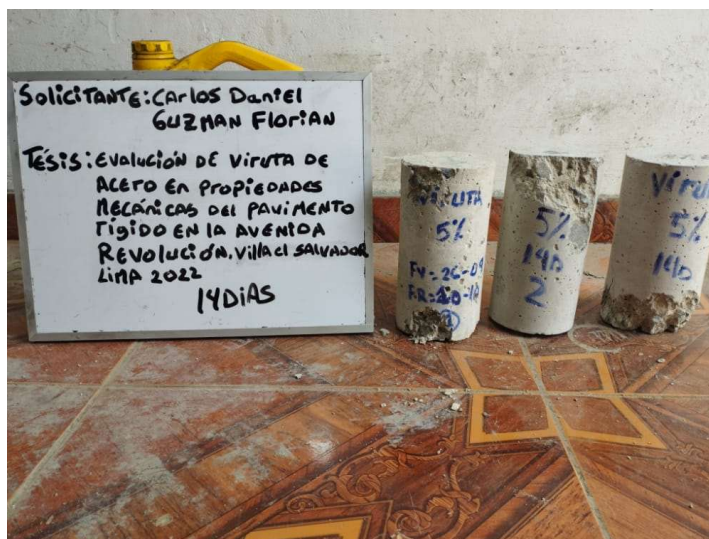 Solicitante: Carlos Daniel
Guzman Florian
Tésis: Evalución de viruta de
acero en propiedades
mecánicas del pavimento
rigido en la avenida
Revolución. Villa el Salvador
Lima 2022
14 Dias
5%
5%
14D
2
Viru
5%
14D